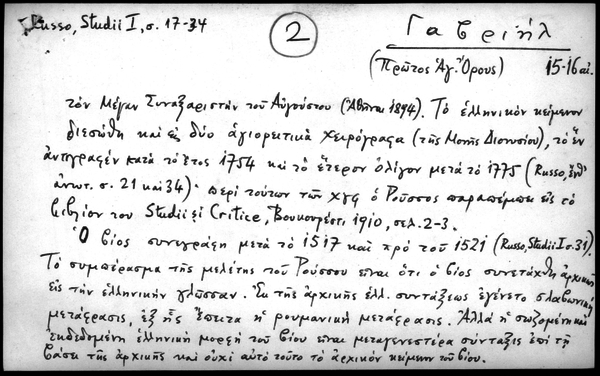 Russo, Studii I, σ. 17-34
2
Γαβριήλ
(Πρῶτος Ἁγ. Ὄρους) 15-16 αἰ.
τὸν Μέγαν Συναξαριστὴν τοῦ Αὐγούστου (Ἀθῆναι 1894). Τὸ ἑλληνικὸν κείμενον
διεσώθη καὶ εἰς δύο ἁγιορειτικὰ χειρόγραφα (τῆς Μονῆς Διονυσίου), τὸ ἓν
ἀντιγραφὲν κατὰ τὸ ἔτος 1754 καὶ τὸ ἕτερον ὀλίγον μετὰ τὸ 1775 (Russo, ἔνθ'
ἀνωτ. σ. 21 καὶ 34)· περὶ τούτων τῶν χφφ ὁ Ροῦσσος παραπέμπει εἰς τὸ
βιβλίον του Studii şi Critice, Βουκουρέστι 1910, σελ. 2-3.
Ὁ βίος συνεγράφη μετὰ τὸ 1517 καὶ πρὸ τοῦ 1521 (Russo, Studii I σ. 31).
Τὸ συμπέρασμα τῆς μελέτης τοῦ Ρούσσου εἶναι ὅτι ὁ βίος συνετάχθη ἀρχικῶς
εἰς τὴν ἑλληνικὴν γλῶσσαν. Ἐκ τῆς ἀρχικῆς ἑλλ. συντάξεως ἐγένετο σλαβωνικὴ
μετάφρασις, ἐξ ἧς ἔπειτα ἡ ρουμανικὴ μετάφρασις. Ἀλλὰ ἡ σωζομένη καὶ
ἐκδεδομένη ἑλληνικὴ μορφὴ τοῦ βίου εἶναι μεταγενεστέρα σύνταξις ἐπὶ τῇ
βάσει τῆς ἀρχικῆς καὶ οὐχὶ αὐτὸ τοῦτο τὸ ἀρχικὸν κείμενον τοῦ βίου.